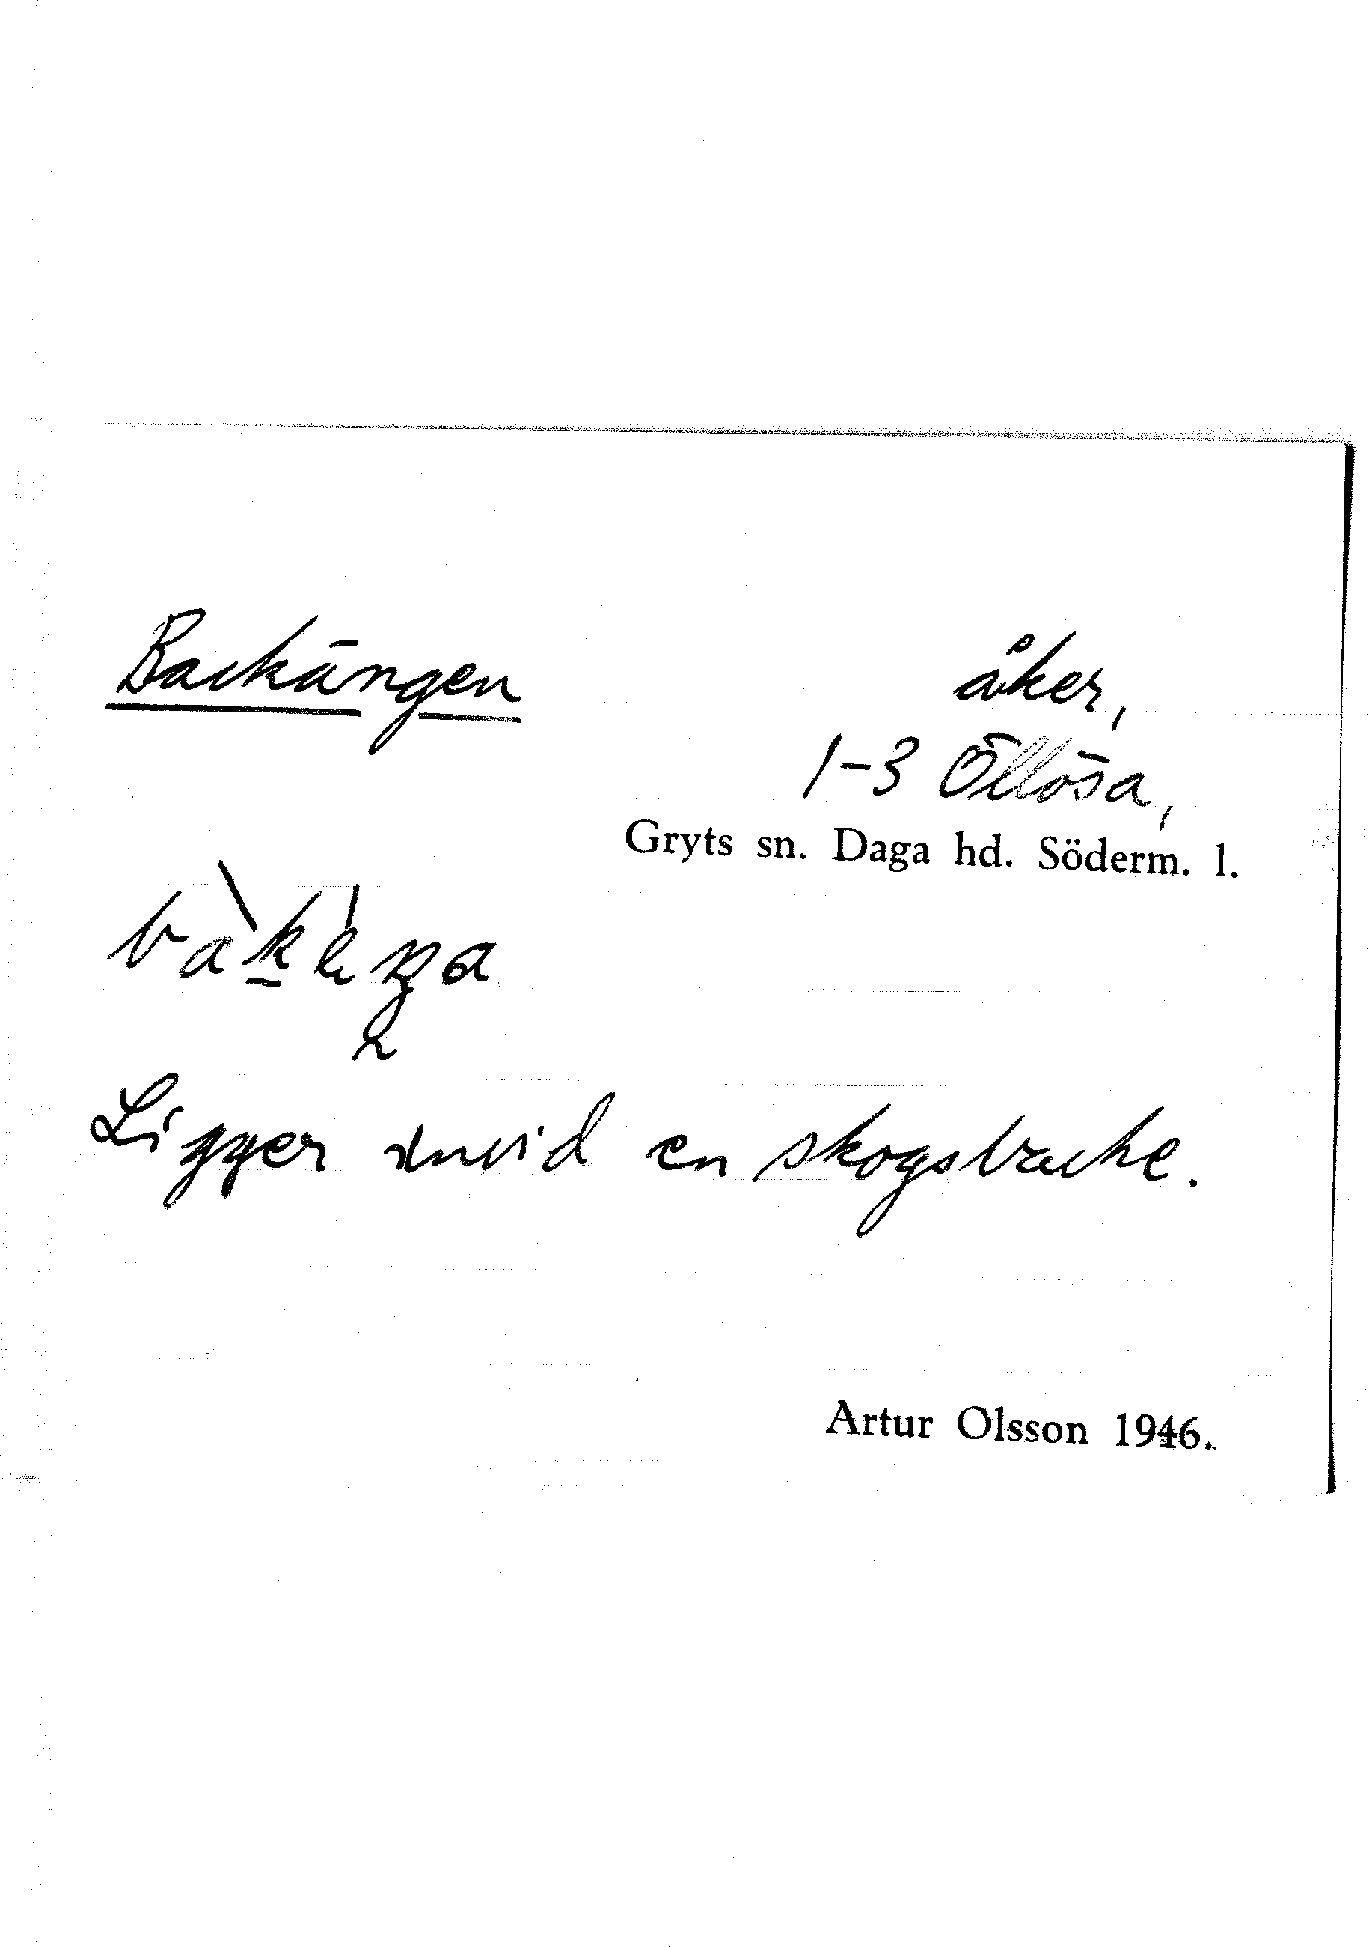 Backängen
åker,
1-3 Öllösa,
Gryts sn. Daga hd. Söderm. l.
Ligger invid en skogsbacke.
Artur Olsson 1946.